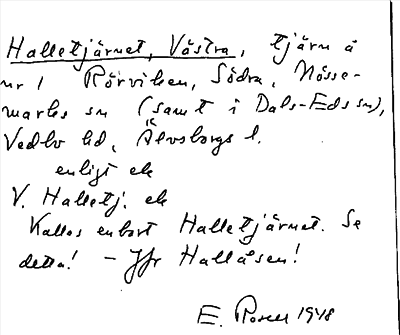 Halletjärnet, Västra, tjärn å
nr 1 Rörviken, Södra, Nösse-
marks sn (samt i Dals-Eds sn),
Vedbo hd, Älvsborgs l.
enligt ek
V. Halletj. ek
Kallas enbart Halletjärnet. Se
detta! - Jfr Hallåsen!
E. 1948